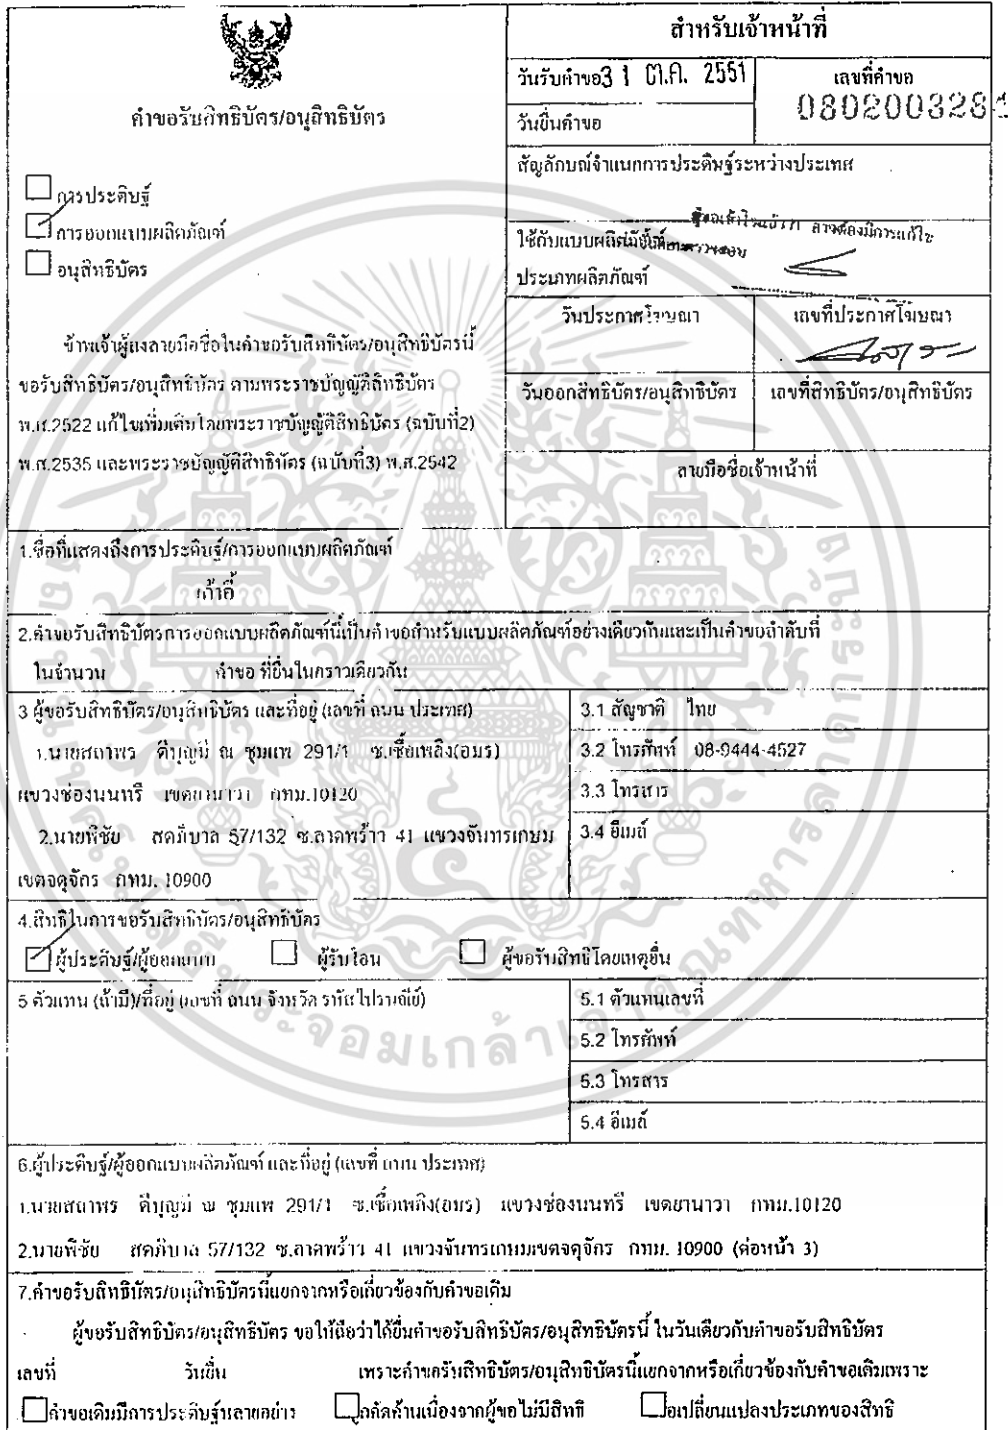 คำขอรับสิทธิบัตร/อนุสิทธิบัตร
การประดิษฐ์
การออกแบบผลิตภัณฑ์
อนุสิทธิบัตร
ข้าพเจ้าผู้ลงลายมือชื่อในคำขอรับสิทธิบัตร/อนุสิทธิบัตรนี้
ขอรับสิทธิบัตร/อนุสิทธิบัตร ตามพระราชบัญญัติสิทธิบัตร
พ.ศ.2522 แก้ไขเพิ่มเติมโดยพระราชบัญญัติสิทธิบัตร (ฉบับที่2)
พ.ศ.2535 และพระราชบัญญัติสิทธิบัตร (ฉบับที่3) พ.ศ.2542
สำหรับเจ้าหน้าที่
วันรับคำขอ 31 ต.ค. 2551
เลขที่คำขอ
วันยื่นคำขอ
080200328
สัญลักษณ์จำแนกการประดิษฐ์ระหว่างประเทศ
ใช้กับแบบผลิตภัณฑ์
อาจต้องมีการแก้ไข
ประเภทผลิตภัณฑ์
วันประกาศโฆษณา
เลขที่ประกาศโฆษณา
วันออกสิทธิบัตร/อนุสิทธิบัตร
เลขที่สิทธิบัตร/อนุสิทธิบัตร
ลายมือชื่อเจ้าหน้าที่
1.ชื่อที่แสดงถึงการประดิษฐ์/การออกแบบผลิตภัณฑ์
เก้าอี้
2.คำขอรับสิทธิบัตรการออกแบบผลิตภัณฑ์นี้เป็นคำขอสำหรับแบบผลิตภัณฑ์อย่างเดียวกันและเป็นคำขอลำดับที่
ในจำนวน คำขอ ที่ยื่นในคราวเดียวกัน
3 ผู้ขอรับสิทธิบัตร/อนุสิทธิบัตร และที่อยู่ (เลขที่ ถนน ประเทศ)
1.นายสถาพร ดีบุญมี ณ ชุมแพ 291/1 ซ.เชื้อเพลิง(อมร)
แขวงช่องนนทรี เขตยานนาวา กทม.10120
2.นายพิชัย สดภิบาล 57/132 ซ.ลาดพร้าว 41 แขวงจันทรเกษม
เขตจตุจักร กทม. 10900
3.1 สัญชาติ ไทย
3.2 โทรศัพท์ 08-9444-4527
3.3 โทรสาร
3.4 อีเมล์
4.สิทธิในการขอรับสิทธิบัตร/อนุสิทธิบัตร
ผู้ประดิษฐ์/ผู้ออกแบบ ผู้รับโอน ผู้ขอรับสิทธิโดยเหตุอื่น
5 ตัวแทน (ถ้ามี)/ที่อยู่ (เลขที่ ถนน จังหวัด รหัสไปรษณีย์)
5.1 ตัวแทนเลขที่
5.2 โทรศัพท์
5.3 โทรสาร
5.4 อีเมล์
6.ผู้ประดิษฐ์/ผู้ออกแบบผลิตภัณฑ์ และที่อยู่ (เลขที่ ถนน ประเทศ)
1.นายสถาพร ดีบุญมี ณ ชุมแพ 291/1 ซ.เชื้อเพลิง(อมร) แขวงช่องนนทรี เขตยานาวา กทม.10120
2.นายพิชัย สดภิบาล 57/132 ซ.ลาดพร้าว 41 แขวงจันทรเกษมเขตจตุจักร กทม. 10900 (ต่อหน้า 3)
7.คำขอรับสิทธิบัตร/อนุสิทธิบัตรนี้แยกจากหรือเกี่ยวข้องกับคำขอเดิม
ผู้ขอรับสิทธิบัตร/อนุสิทธิบัตร ขอให้ถือว่าได้ยื่นคำขอรับสิทธิบัตร/อนุสิทธิบัตรนี้ ในวันเดียวกับคำขอรับสิทธิบัตร
เลขที่ วันยื่น เพราะคำขอรับสิทธิบัตร/อนุสิทธิบัตรนี้แยกจากหรือเกี่ยวข้องกับคำขอเดิมเพราะ
คำขอเดิมมีการประดิษฐ์หลายอย่าง ถูกคัดค้านเนื่องจากผู้ขอไม่มีสิทธิ ขอเปลี่ยนแปลงประเภทของสิทธิ